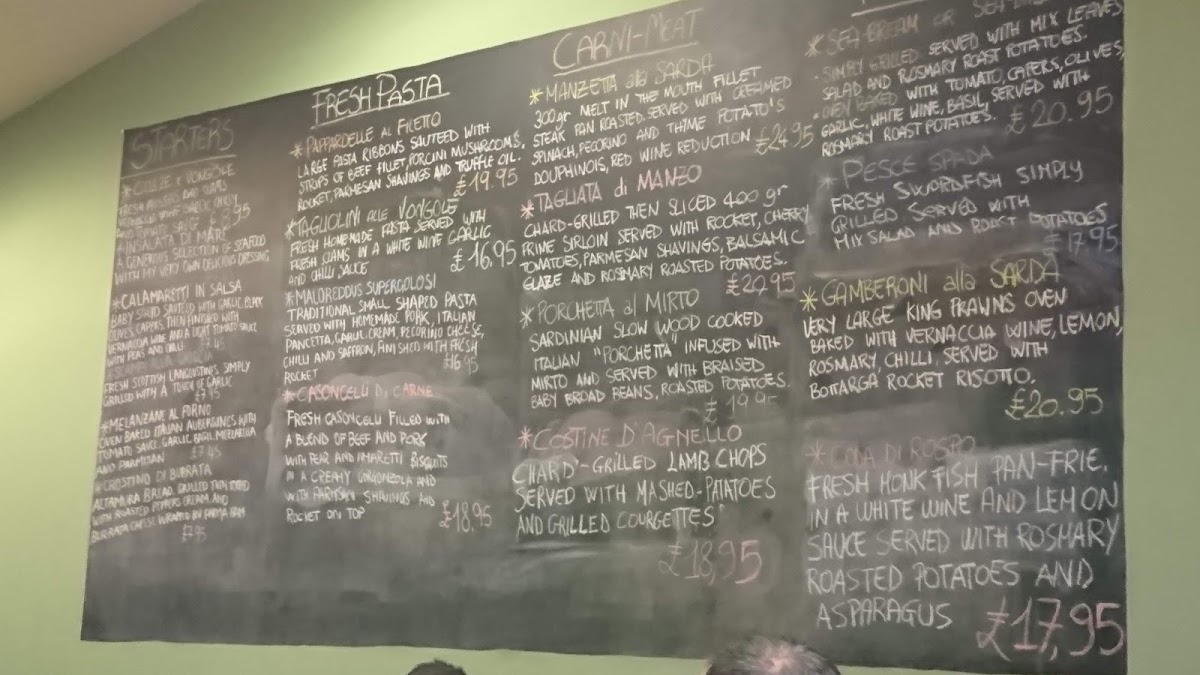 STARTERS
*COZZE e VONGOLE
FRESH MUSSELS AND CLAMS
*INSALATA DI MARE
A GENEROUS SELECTION OF SEAFOOD
WITH MY VERY OWN DELICIOUS DRESSING
*CALAMARETTI IN SALSA
BABY SQUID SAUTEED WITH GARLIC, BLACK
OLIVES, CAPERS, THEN FINISHED WITH
VERNACCIA WINE AND A LIGHT TOMATO SAUCE
WITH PEAS AND CHILLI
FRESH SCOTTISH LANGOUSTINES, SIMPLY
GRILLED WITH A TOUCH OF GARLIC
£7.95
*MELANZANE AL FORNO
OVEN BAKED ITALIAN AUBERGINES WITH
TOMATO SAUCE, GARLIC, BASIL, MOZZARELLA
AND PARMISAN £7.45
*CROSTINO DI BURRATA
ALTAMURA BREAD, GRILLED THEN TOPPED
WITH ROASTED PEPPERS CREAM, AND
BURRATA CHEESE WRAPPED BY PARMA HAM
£7.95
FRESH PASTA
*PAPPARDELLE AL FILETTO
LARGE PASTA RIBBONS SAUTEED WITH
STRIPS OF BEEF FILLET, PORCINI MUSHROOMS,
ROCKET, PARMESAN SHAVINGS AND TRUFFLE OIL.
£19.95
*TAGLIOLINI alle VONGOLE
FRESH HOMEMADE PASTA SERVED WITH
FRESH CLAMS IN A WHITE WINE GARLIC
AND CHILLI SAUCE £16.95
*MALOREDDUS SUPERGOLOSI
TRADITIONAL SMALL SHAPED PASTA
SERVED WITH HOMEMADE PORK, ITALIAN
PANCETTA, GARLIC, CREAM, PECORINO CHEESE,
CHILLI AND SAFFRON, FINISHED WITH FRESH
ROCKET £16.95
*CASONCELLI DI CARNE
FRESH CASONCELLI FILLED WITH
A BLEND OF BEEF AND PORK
WITH PEAR AND AMARETTI BISQUITS
IN A CREAMY GORGONZOLA AND
WITH PARMISAN SHAVINGS AND
ROCKET ON TOP £18.95
CARNI-MEAT
*MANZETTA alla SARDA
300gr MELT IN THE MOUTH FILLET
STEAK PAN ROASTED. SERVED WITH CREAMED
SPINACH, PECORINO AND THYME POTATO'S
DOUPHINOIS, RED WINE REDUCTION £24.95
*TAGLIATA di MANZO
CHARD-GRILLED THEN SLICED 400 gr
PRIME SIRLOIN SERVED WITH ROCKET, CHERRY
TOMATOES, PARMESAN SHAVINGS, BALSAMIC
GLAZE AND ROSMARY ROASTED POTATOES.
£20.95
*PORCHETTA al MIRTO
SARDINIAN SLOW WOOD COOKED
ITALIAN "PORCHETTA" INFUSED WITH
MIRTO AND SERVED WITH BRAISED
BABY BROAD BEANS, ROASTED POTATOES.
£19.95
*COSTINE D'AGNELLO
CHARD-GRILLED LAMB CHOPS
SERVED WITH MASHED-PATATOES
AND GRILLED COURGETTES
£18,95
*SEA-BREAM OR
- SIMPLY GRILLED SERVED WITH MIX LEAVES
SALAD AND ROSMARY ROAST POTATOES.
- OVEN BAKED WITH TOMATO, CAPERS, OLIVES,
GARLIC, WHITE WINE, BASIL, SERVED WITH
ROSMARY ROAST POTATOES. £20.95
*PESCE SPADA
FRESH SWORDFISH SIMPLY
GRILLED SERVED WITH
MIX SALAD AND ROAST POTATOES
£17.95
*GAMBERONI alla SARDA
VERY LARGE KING PRAWNS OVEN
BAKED WITH VERNACCIA WINE, LEMON,
ROSMARY, CHILLI, SERVED WITH
BOTTARGA ROCKET RISOTTO.
£20.95
*CODA DI ROSPO
FRESH MONK FISH PAN-FRIE.
IN A WHITE WINE AND LEMON
SAUCE SERVED WITH ROSMARY
ROASTED POTATOES AND
ASPARAGUS £17,95